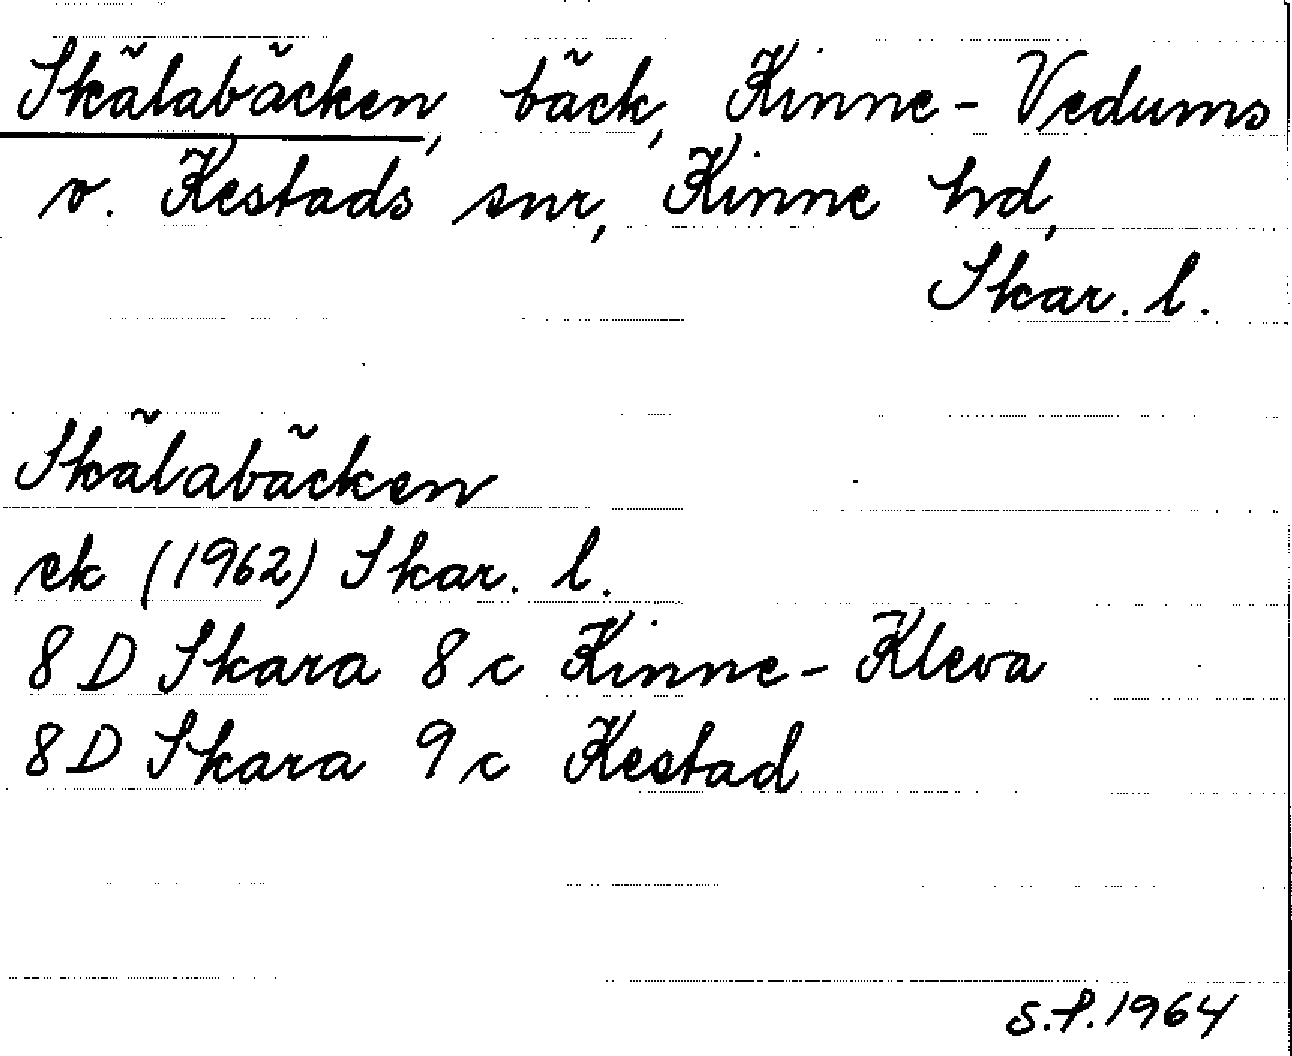 Skälabäcken, bäck, Kinne-Vedums
o. Kestads snr, Kinne hd,
Skar. l.
Skälabäcken
ek (1962) Skar. l.
8 D Skara 8 c Kinne-Kleva
8 D Skara 9 c Kestad
S.P. 1964